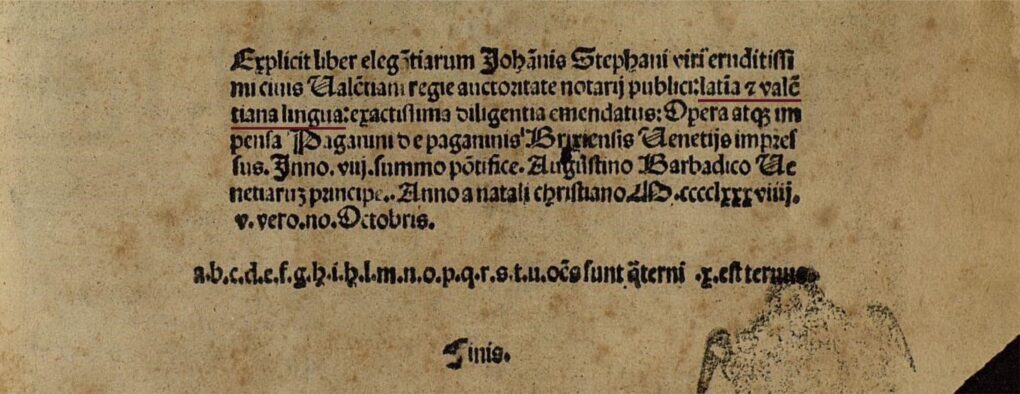 Explicit liber elegātiarum Johānis Stephani viri eruditissi
mi ciuis Ualētiani regie auctoritate notarij publici: latīa ⁊ valē
tiana lingua: exactissima diligentia emendatus: Opera atqꝫ im
pensa Paganini de paganinis Brixiensis Uenetijs impres
sus. Inno. viij. summo pōtifice. Augustino Barbadico Ue
netiaruꝫ principe.. Anno a natali christiano. M.cccclxxxviiij.
v. vero. no. Octobris.
a.b.c.d.e.f.g.h.i.k.l.m.n.o.p.q.r.s.t.u. oēs sunt q̄terni .x. est ternus.
Finis.